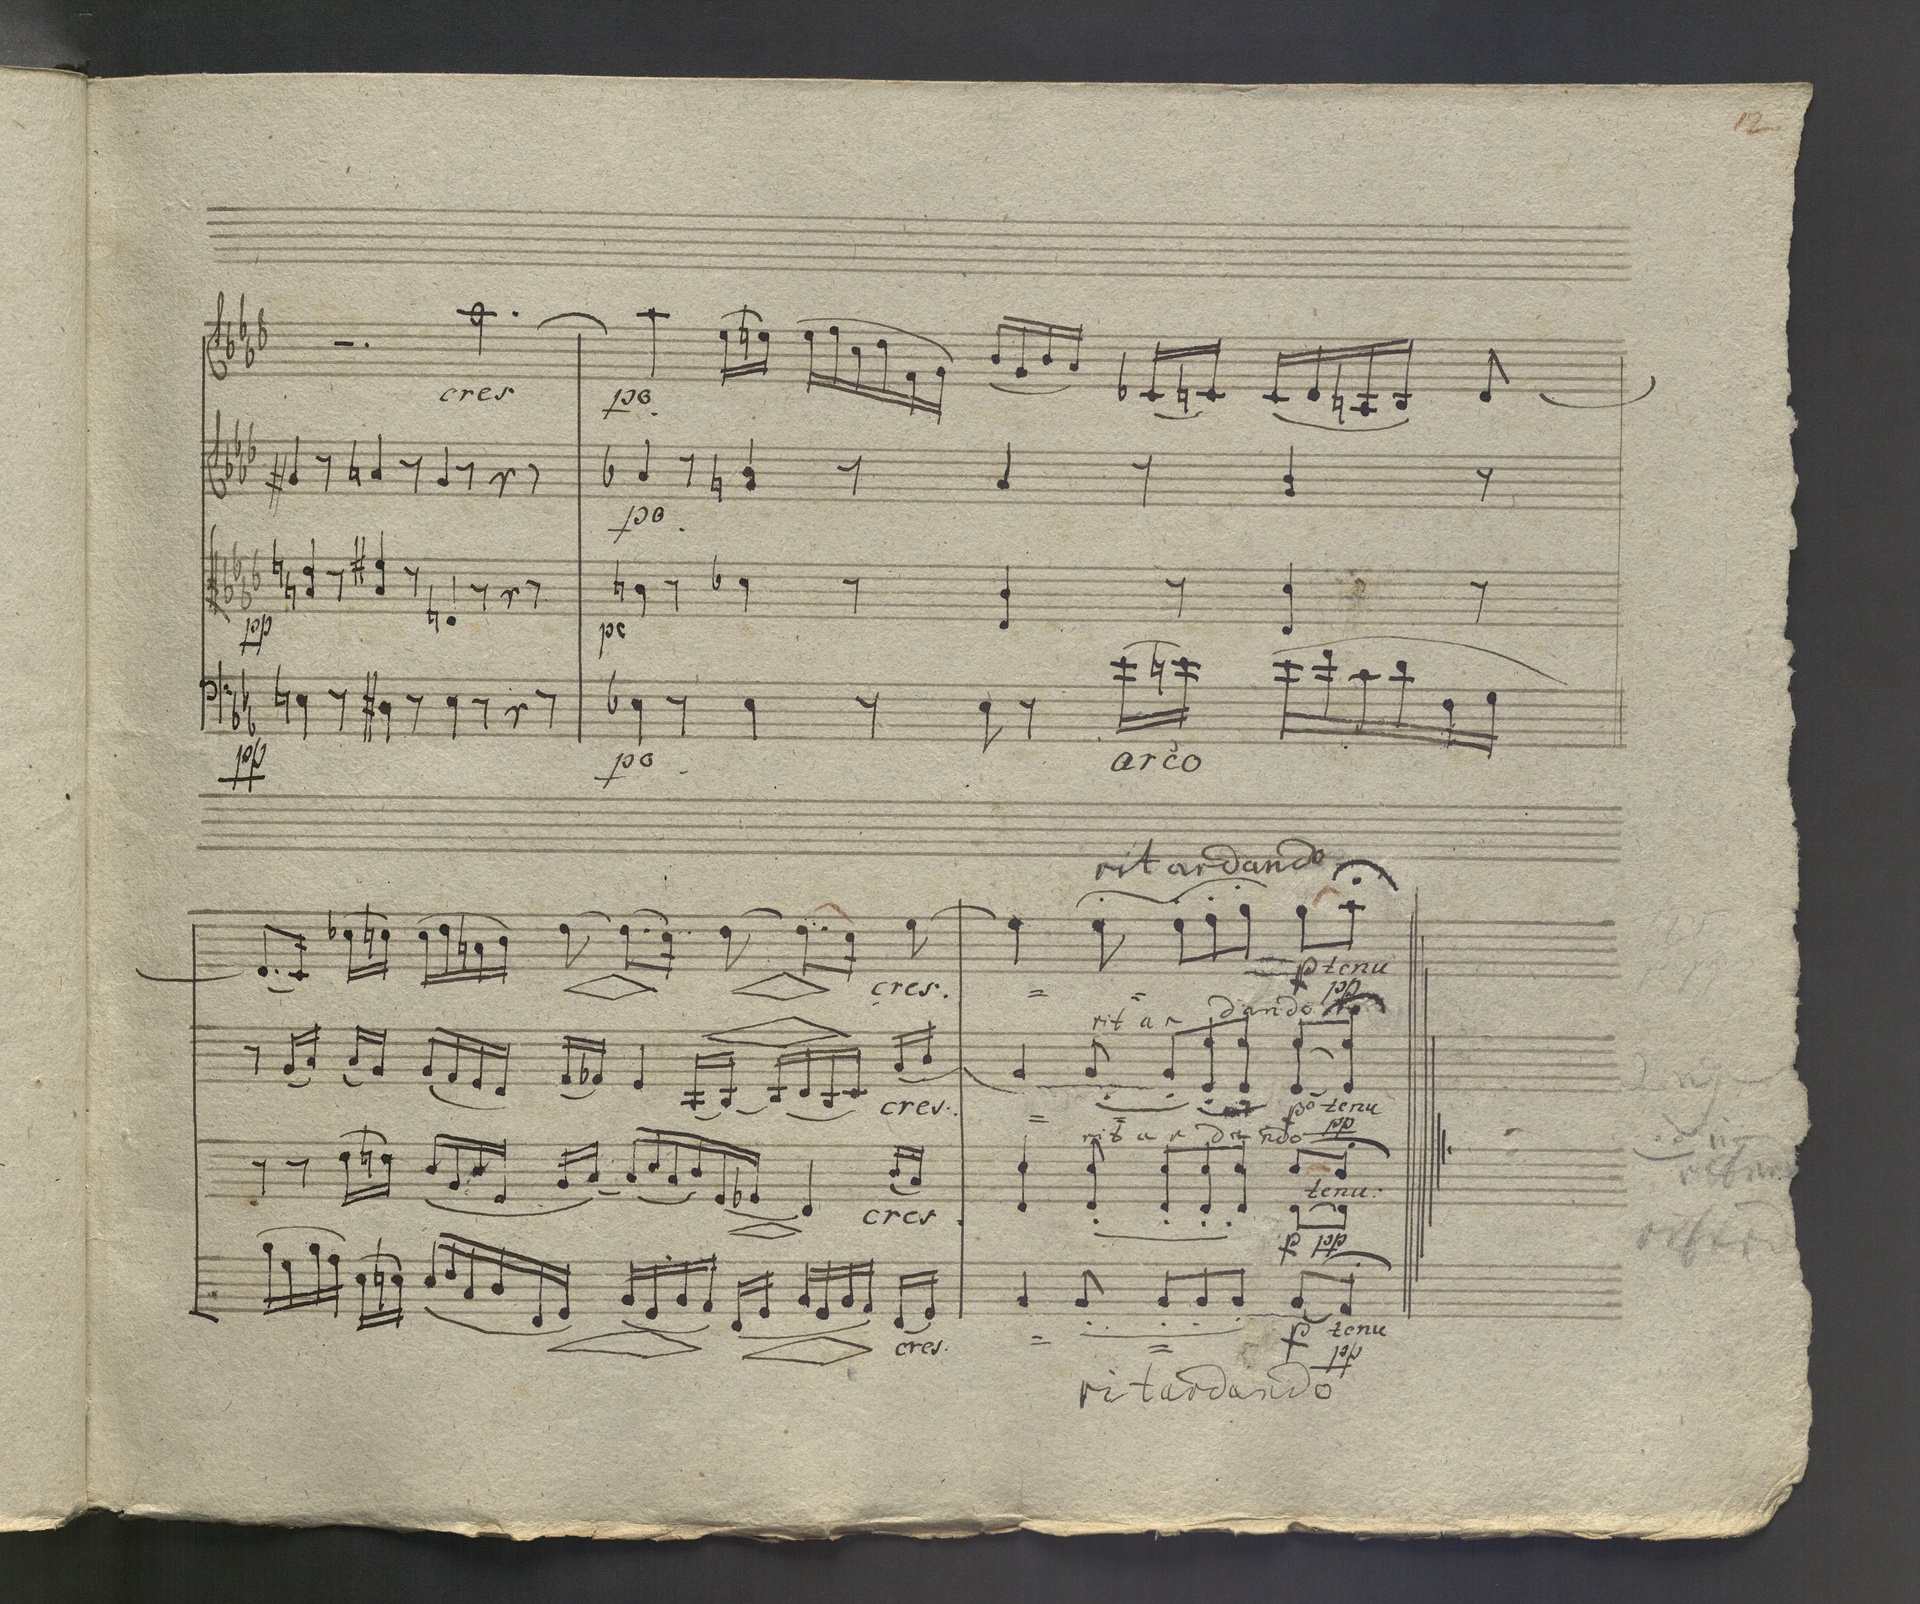 12
cres po
po
pp pc
arco
pp po
ritardando
cres. p tenu
pp
rit a r dando
cres. po tenu
rit a r da ndo pp
tenu.
cres
p pp
cres. p tenu
pp
ritardando